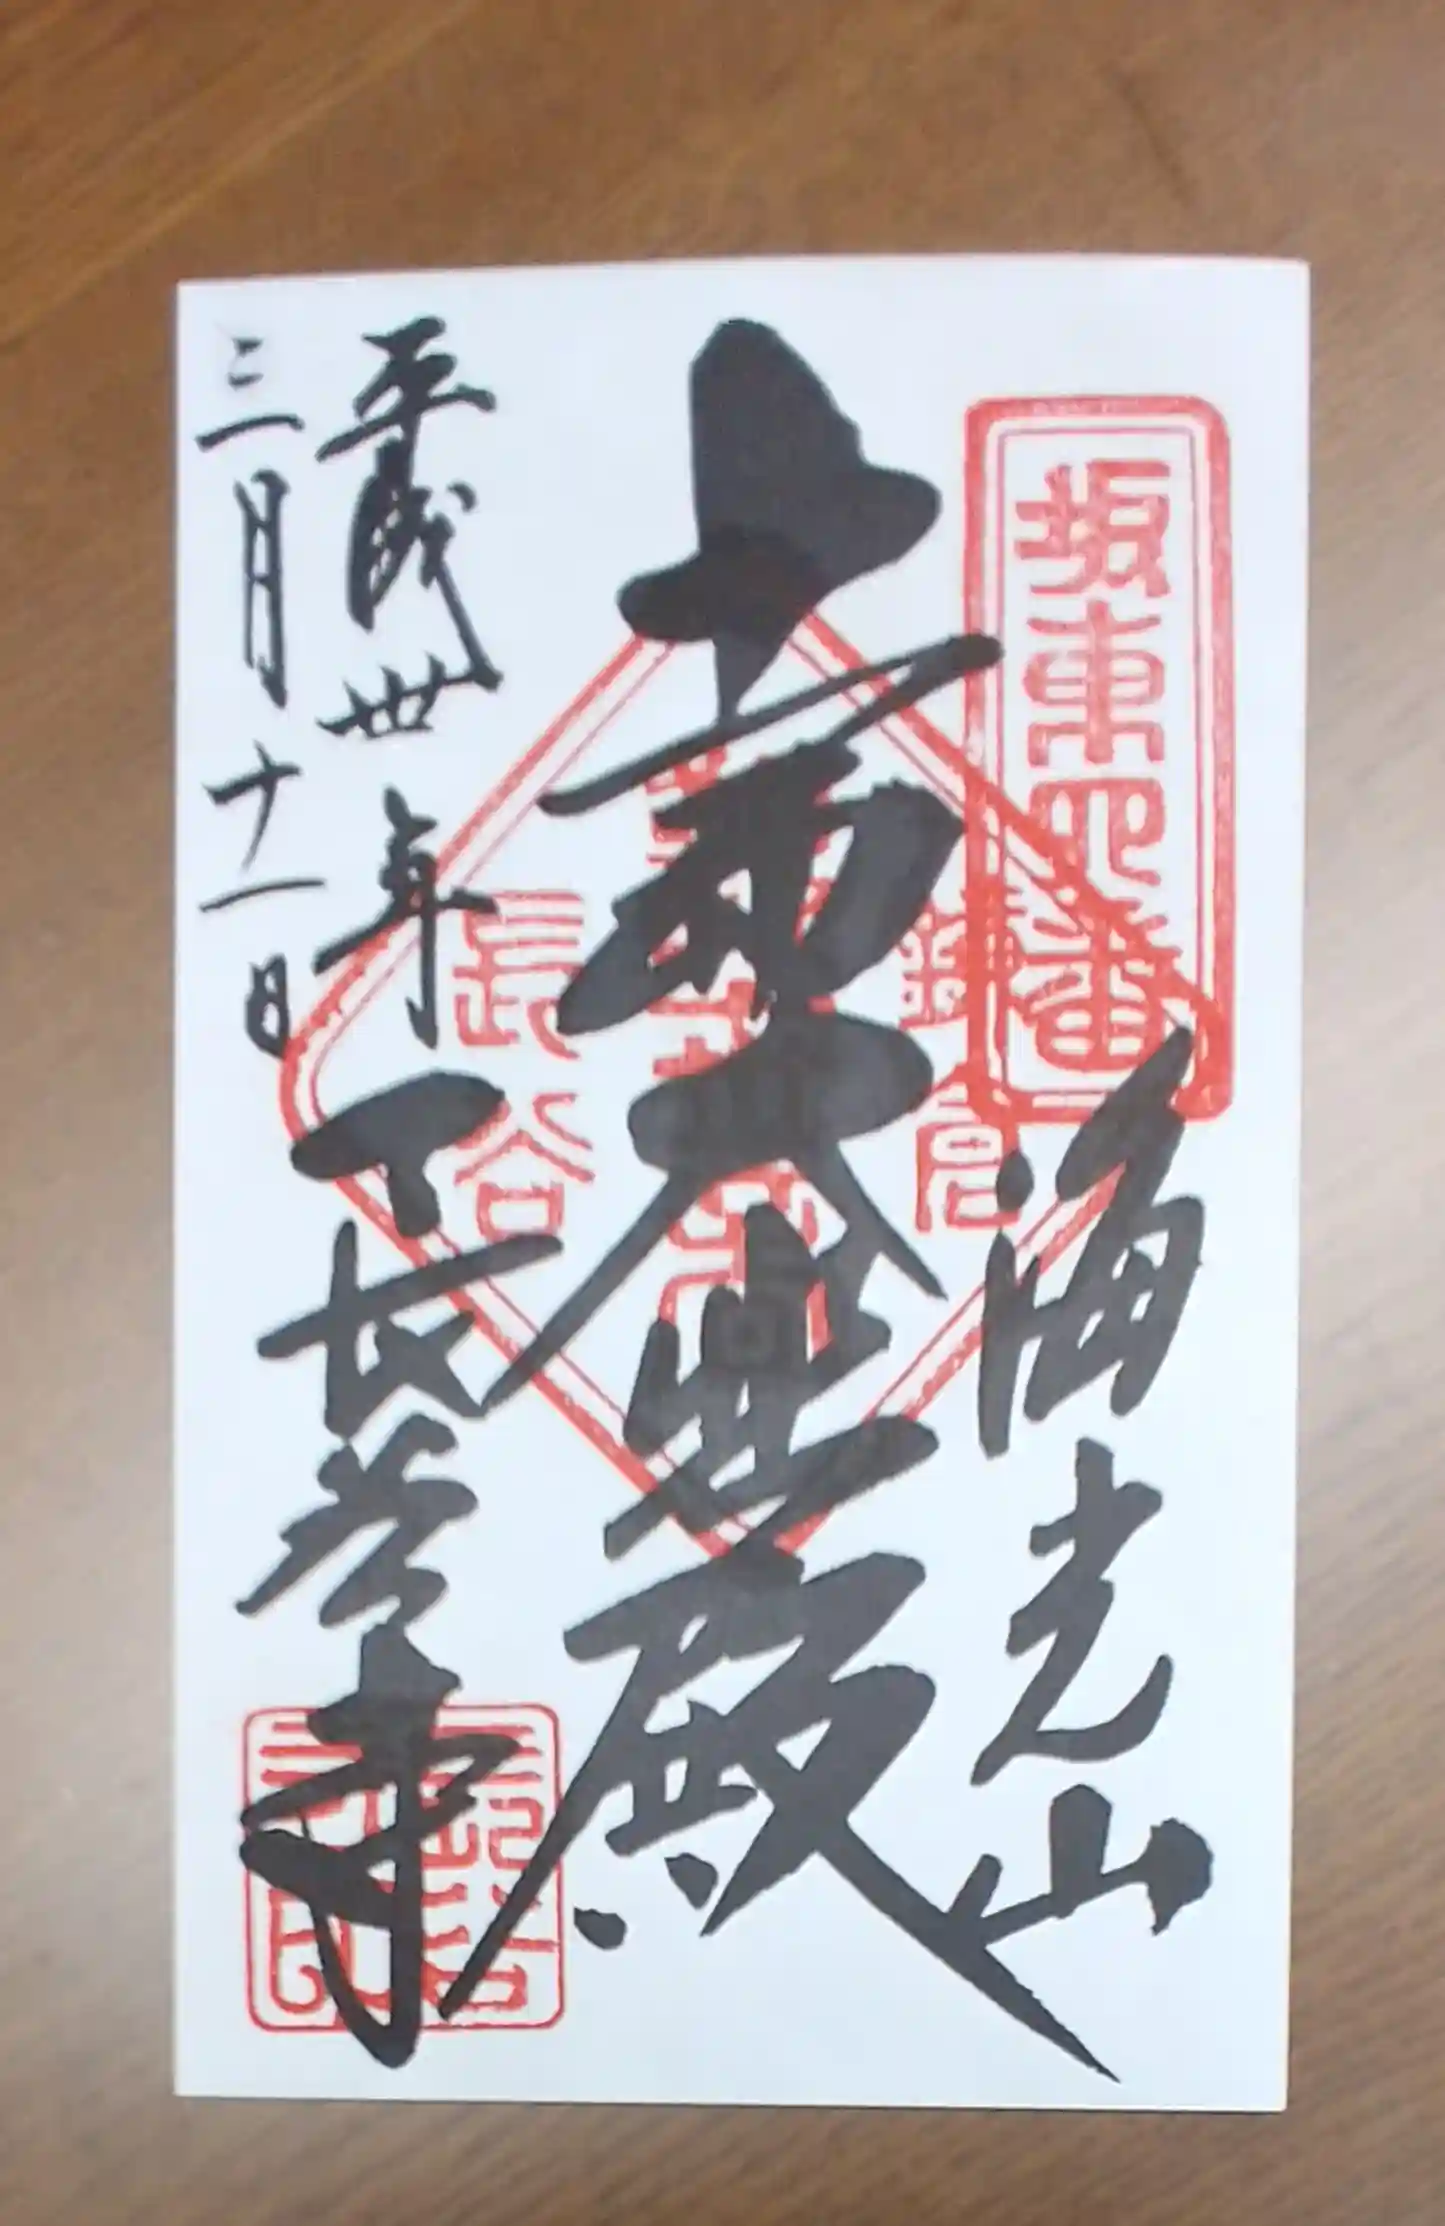 坂東四番
海光山
十一面大悲殿
鎌倉
長谷
平成卅年
三月十一日
長谷寺